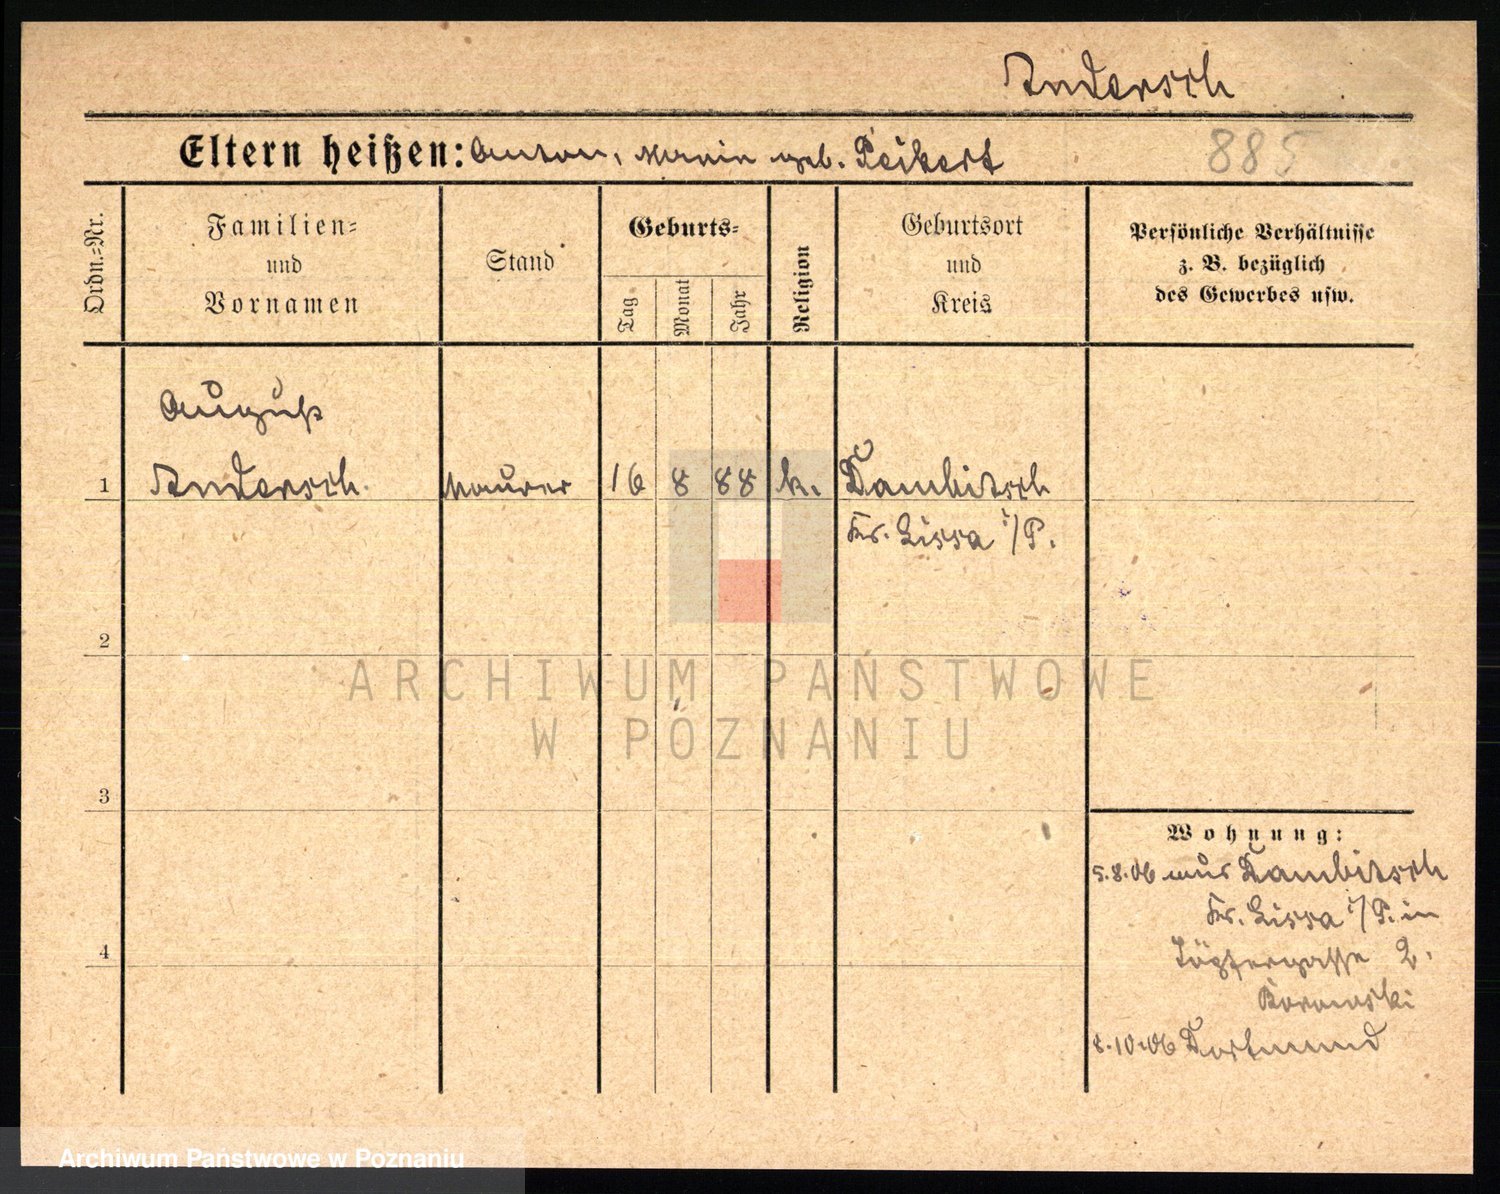 Andersch
Eltern heißen: Anton, Maria geb. Peikert
885
Ordn.-Nr.
Familien-
und
Vornamen
Stand
Geburts-
Tag
Monat
Jahr
Religion
Geburtsort
und
Kreis
Persönliche Verhältnisse
z. B. bezüglich
des Gewerbes usw.
August
1 Andersch. Maurer 16 8 88 k. Dambitsch
Kr. Lissa i/P.
2
ARCHIWUM PAŃSTWOWE
W POZNANIU
3
Wohnung:
5.8.06 aus Dambitsch
Kr. Lissa i/P. in
4
Töpfergasse 2.
Borowski
8.10.06 Dortmund
Archiwum Państwowe w Poznaniu